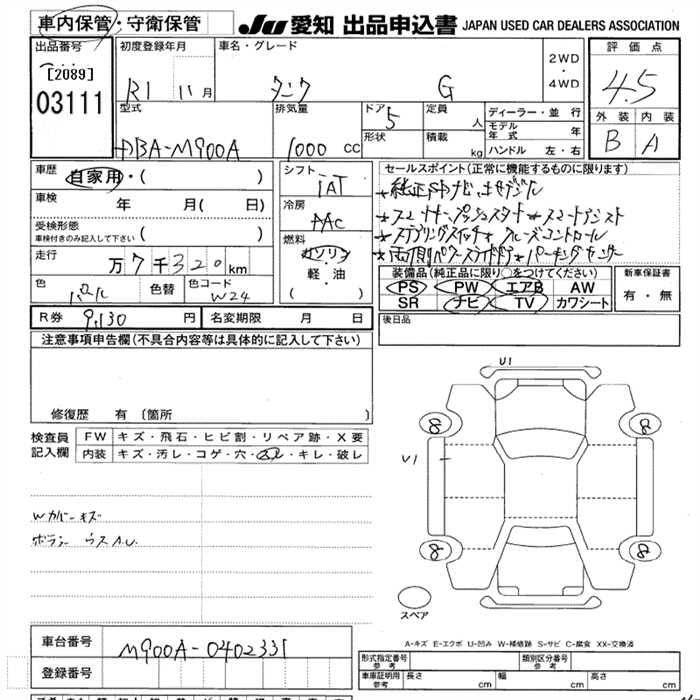 車内保管・守衛保管 JU 愛知 出品申込書 JAPAN USED CAR DEALERS ASSOCIATION
出品番号 [2089] 03111
初度登録年月 R1 11月
車名・グレード タンク G
2WD・4WD
評価点 4.5
外装 B 内装 A
型式 DBA-M900A
排気量 1000 CC
ドア 5
形状
定員 人
積載 kg
ディーラー・並行
モデル年式 年
ハンドル 左・右
車歴 自家用・( )
車検 年 月( 日)
受検形態
車検付きのみ記入して下さい ( )
走行 万7千320km
色 パール 色替 色コード W24
シフト IAT
冷房 AAC
燃料 ガソリン
軽・油
( )
セールスポイント(正常に機能するものに限ります)
スマートキー プッシュスタート スマートアシスト
クルーズコントロール
両側パワースライドドア
装備品(純正品に限り○をつけてください)
PS PW エアB AW
SR ナビ TV カワシート
新車保証書
有・無
R券 9,130 円 名変期限 月 日
後日品
注意事項申告欄(不具合内容等は具体的に記入して下さい)
修復歴 有〔箇所 〕
検査員記入欄
FW キズ・飛石・ヒビ割・リペア跡・X要
内装 キズ・汚レ・コゲ・穴・スレ・キレ・破レ
Wカバーキズ
ボデー ウス A.U.
U1
U1
8
8
8
8
スペア
A-キズ E-エクボ U-凹み W-補修跡 S-サビ C-腐食 XX-交換済
車台番号 M900A-0402331
登録番号
形式指定番号 参考
類別区分番号 参考
車庫証明用 参考 長さ cm 幅 cm 高さ cm